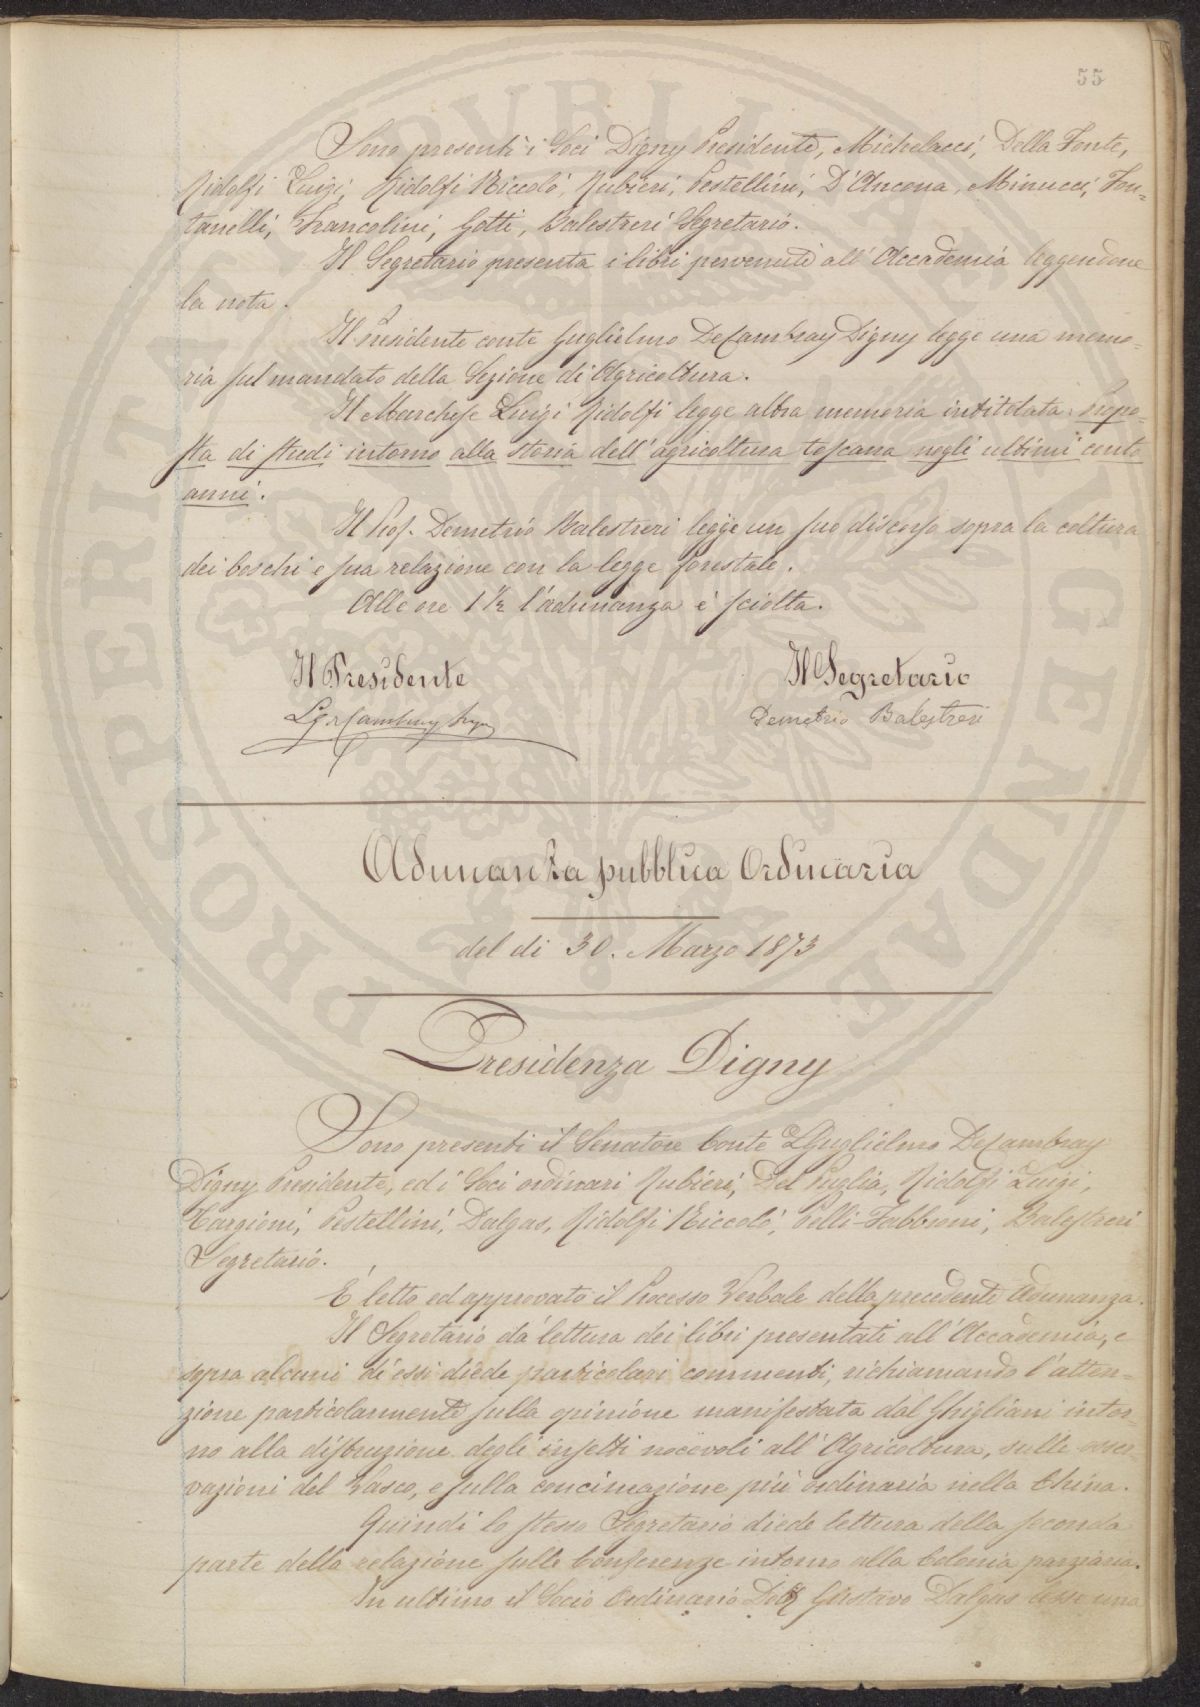 55
Sono presenti i Soci Digny Presidente, Michelacci, Della Fonte,
Ridolfi Luigi, Ridolfi Niccolò, Rubieri, Pestellini, D'Ancona, Minucci, Fon-
tanelli, Francolini, Gotti, Balestreri Segretario.
Il Segretario presenta i libri pervenuti all'Accademia leggendone
la nota.
Il Presidente conte Guglielmo De Cambray Digny legge una memo-
ria sul mandato della Sezione di Agricoltura.
Il Marchese Luigi Ridolfi legge altra memoria intitolata: Propo-
sta di studi intorno alla storia dell'agricoltura toscana negli ultimi cento
anni.
Il Prof. Demetrio Balestreri legge un suo discorso sopra la coltura
dei boschi e sua relazione con la legge forestale.
Alle ore 1 ½ l'adunanza è sciolta.
Il Presidente Il Segretario
Cambray Digny Demetrio Balestreri
Adunanza pubblica Ordinaria
del dì 30. Marzo 1873
Presidenza Digny
Sono presenti il Senatore Conte Guglielmo De Cambray
Digny Presidente, ed i Soci ordinari Rubieri, Del Puglia, Ridolfi Luigi,
Targioni, Pestellini, Dalgas, Ridolfi Niccolò, Pelli-Fabbroni, Balestreri
Segretario.
È letto ed approvato il Processo Verbale della precedente Adunanza.
Il Segretario dà lettura dei libri presentati all'Accademia, e
sopra alcuni di essi diede particolari commenti, richiamando l'atten-
zione particolarmente sulla opinione manifestata dal Ghiliani intor-
no alla distruzione degli insetti nocevoli all'Agricoltura, sulle osser-
vazioni del Vasco, e sulla concimazione più ordinaria nella China.
Quindi lo stesso Segretario diede lettura della seconda
parte della relazione sulle Conferenze intorno alla Colonia parziaria.
In ultimo il Socio Ordinario Gustavo Dalgas lesse una
PROSPERITATI PVBLICAE AVGENDAE